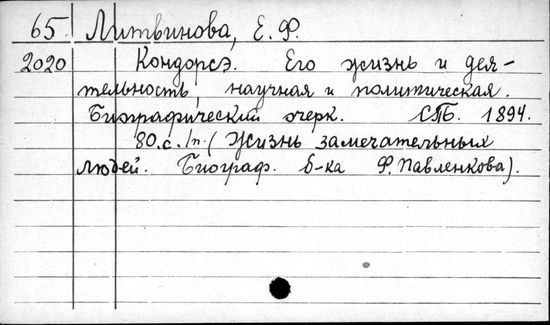 65. Литвинова, Е. Ф.
2020 Кондорсэ. Его жизнь и дея-
тельность научная и политическая.
Биографический очерк. СПБ. 1894.
80.с. 1п. (Жизнь замечательных
людей. Биограф. б-ка Ф. Павленкова).